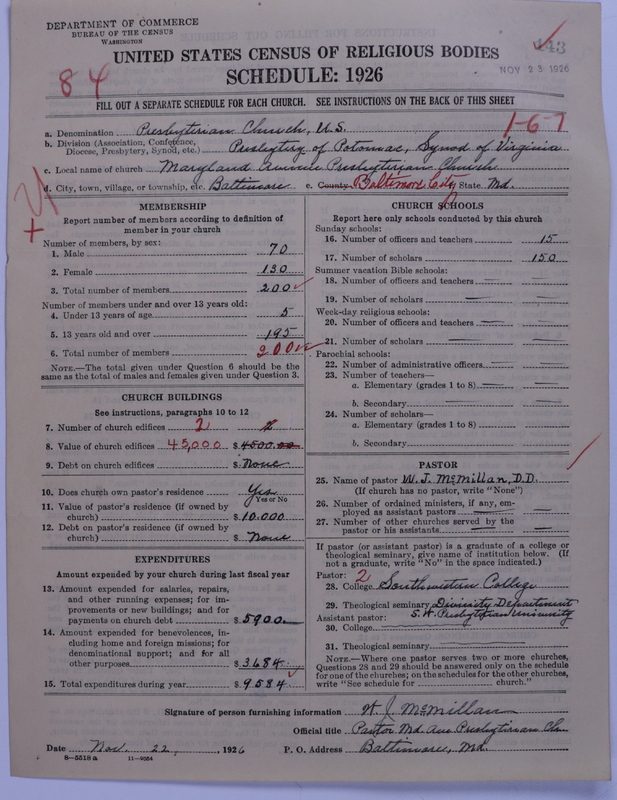 DEPARTMENT OF COMMERCE
BUREAU OF THE CENSUS
WASHINGTON
443
NOV 23 1926
84
UNITED STATES CENSUS OF RELIGIOUS BODIES
SCHEDULE: 1926
FILL OUT A SEPARATE SCHEDULE FOR EACH CHURCH. SEE INSTRUCTIONS ON THE BACK OF THIS SHEET
1-6-7
a. Denomination Presbyterian Church, U.S.
b. Division (Association, Conference, Diocese, Presbytery, Synod, etc.) Presbytery of Potomac, Synod of Virginia
c. Local name of church Maryland Avenue Presbyterian Church
d. City, town, village, or township, etc. Baltimore e. County Baltimore City State Md.
MEMBERSHIP
Report number of members according to definition of
member in your church
Number of members, by sex:
1. Male 70
2. Female 130
3. Total number of members 200
Number of members under and over 13 years old:
4. Under 13 years of age 5
5. 13 years old and over 195
6. Total number of members 200
NOTE.—The total given under Question 6 should be the
same as the total of males and females given under Question 3.
CHURCH BUILDINGS
See instructions, paragraphs 10 to 12
7. Number of church edifices 2
8. Value of church edifices 45,000 $ 4500.00
9. Debt on church edifices $ None
10. Does church own pastor's residence Yes
Yes or No
11. Value of pastor's residence (if owned by
church) $ 10.000
12. Debt on pastor's residence (if owned by
church) $ None
EXPENDITURES
Amount expended by your church during last fiscal year
13. Amount expended for salaries, repairs,
and other running expenses; for im-
provements or new buildings; and for
payments on church debt $ 5900.
14. Amount expended for benevolences, in-
cluding home and foreign missions; for
denominational support; and for all
other purposes $ 3684
15. Total expenditures during year $ 9584
CHURCH SCHOOLS
Report here only schools conducted by this church
Sunday schools:
16. Number of officers and teachers 15
17. Number of scholars 150
Summer vacation Bible schools:
18. Number of officers and teachers —
19. Number of scholars —
Week-day religious schools:
20. Number of officers and teachers —
21. Number of scholars —
Parochial schools:
22. Number of administrative officers —
23. Number of teachers—
a. Elementary (grades 1 to 8) —
b. Secondary —
24. Number of scholars—
a. Elementary (grades 1 to 8) —
b. Secondary
PASTOR
25. Name of pastor W. J. McMillan, D.D.
(If church has no pastor, write "None")
26. Number of ordained ministers, if any, em-
ployed as assistant pastors —
27. Number of other churches served by the
pastor or his assistants —
If pastor (or assistant pastor) is a graduate of a college or
theological seminary, give name of institution below. (If
not a graduate, write "No" in the space indicated.)
Pastor: 2
28. College Southwestern College
29. Theological seminary Divinity Department
S. W. Presbyterian University
Assistant pastor:
30. College
31. Theological seminary
NOTE.—Where one pastor serves two or more churches,
Questions 28 and 29 should be answered only on the schedule
for one of the churches; on the schedules for the other churches,
write "See schedule for ______ church."
Signature of person furnishing information W. J. McMillan
Official title Pastor Md. Ave Presbyterian Ch.
Date Nov. 22, , 1926 P. O. Address Baltimore, Md.
8—5518 a 11—9554